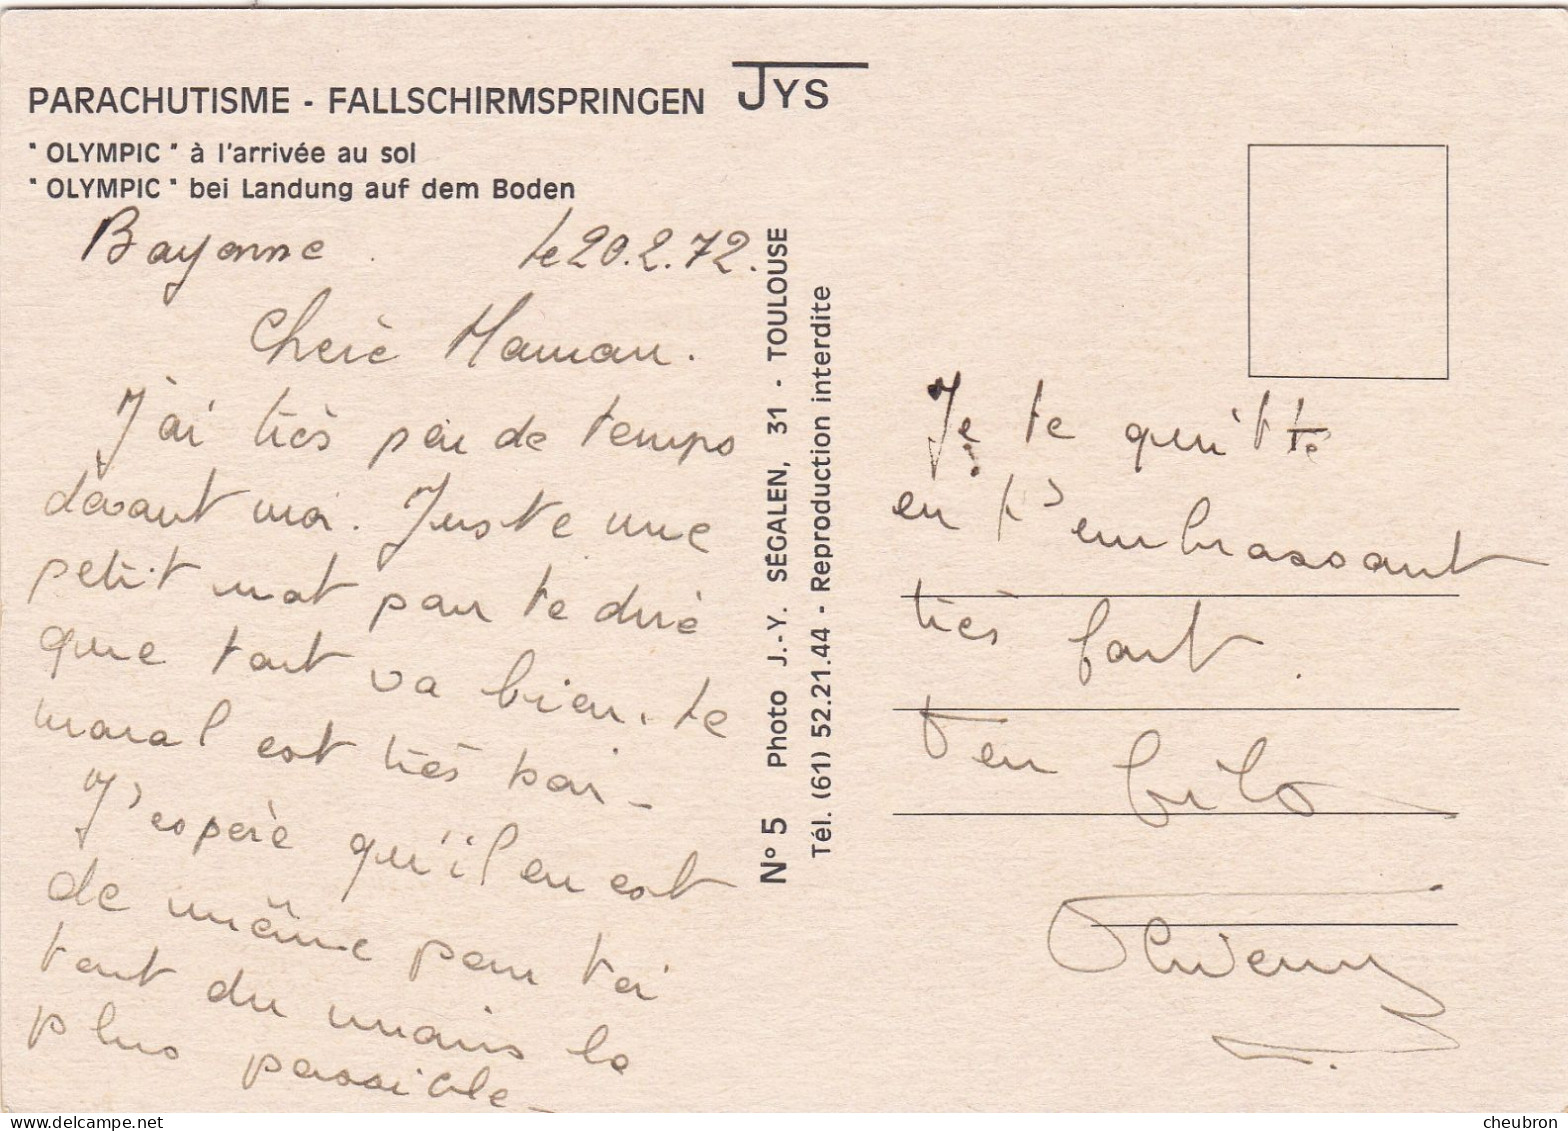 PARACHUTISME - FALLSCHIRMSPRINGEN
JYS
" OLYMPIC " à l'arrivée au sol
" OLYMPIC " bei Landung auf dem Boden
Bayonne. le 20.2.72.
Chère Maman.
J'ai très peu de temps
devant moi. Juste une
petit mot pour te dire
que tout va bien. le
moral est très bon -
J'espère qu'il en est
de même pour toi
tout du moins le
plus possible -
N° 5 Photo J.-Y. SÉGALEN, 31 - TOULOUSE
Tél. (61) 52.21.44 - Reproduction interdite
Je te quitte
en t'embrassant
très fort.
Ton
Thierry
www.delcampe.net
cheubron